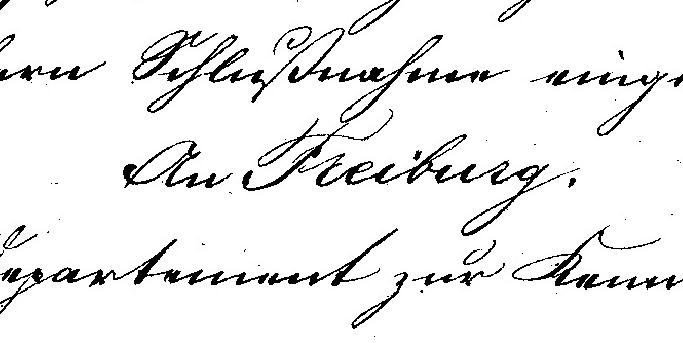 ern Schlußnahme einge
An Freiburg.
Departement zur Kenn